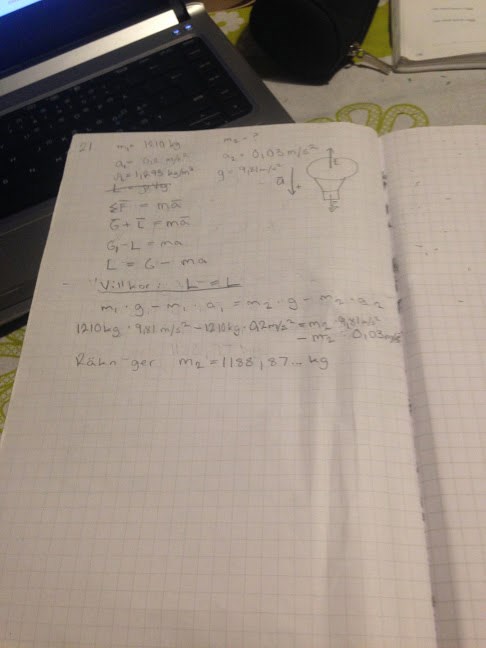 21
m₁ = 1210 kg m₂ = ?
a₁ = 0,2 m/s² a₂ = 0,03 m/s²
g = 9,81 m/s²
ΣF̄ = mā
Ḡ + L̄ = mā
G - L = ma
L = G - ma
Villkor: L = L
m₁ · g - m₁ · a₁ = m₂ · g - m₂ · a₂
1210 kg · 9,81 m/s² - 1210 kg · 0,2 m/s² = m₂ · 9,81 m/s²
- m₂ · 0,03 m/s²
m₂ = 1188,87... kg